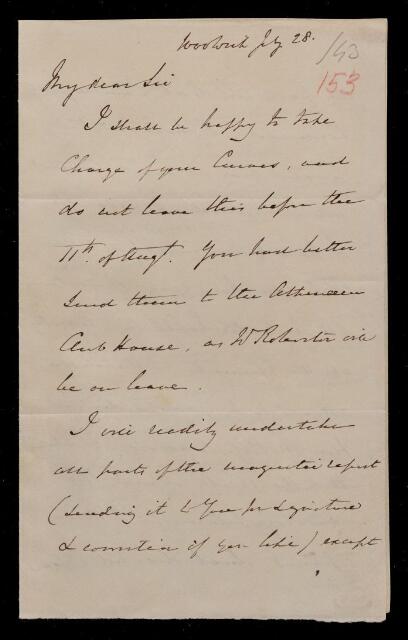 Woolwich July 28.
143
153
My dear Sir
I shall be happy to take
Charge of your Curves, and
do not leave this before the
11th. of Augt. You had better
send them to the Athenæum
Club House, as Mr Roberton will
be on leave.
I will readily undertake
all parts of the magnetic report
(sending it to you for signature
& correction if you like) except